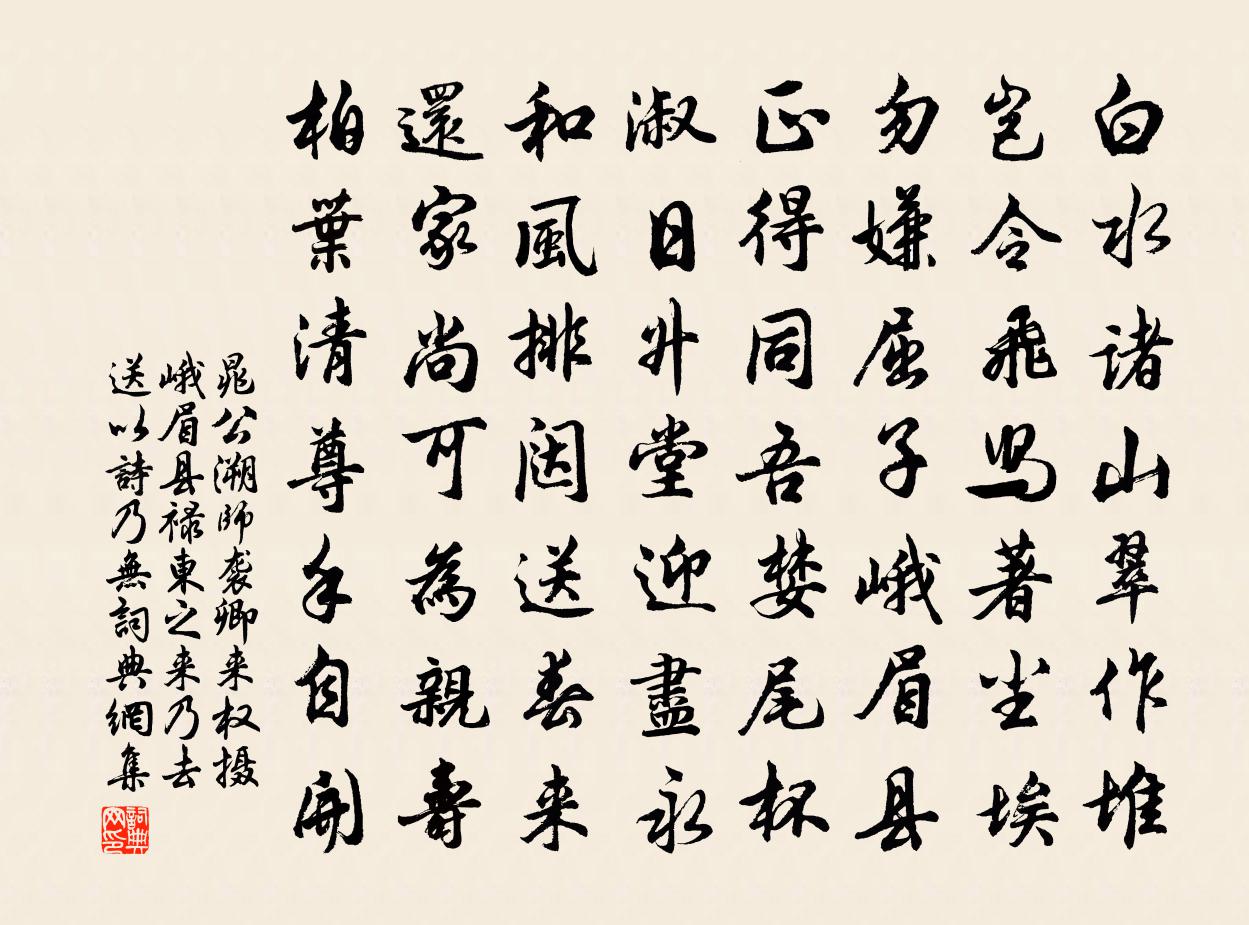 白水诸山翠作堆
岂令飛舄著尘埃
勿嫌屈子峨眉县
正得同吾婪尾杯
淑日升堂迎盡永
和風排闼送春来
還家尚可為親壽
柏葉清尊手自開
晁公溯師袭卿来权摄
峨眉县禄東之来乃去
送以詩乃無詞典網集
詞典
网印